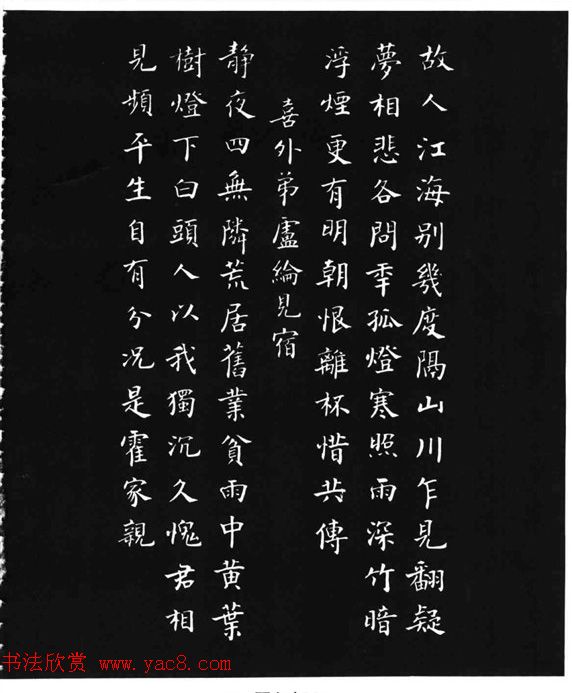 故人江海别幾度隔山川乍見翻疑
夢相悲各問年孤燈寒照雨深竹暗
浮煙更有明朝恨離杯惜共傳
喜外弟盧綸見宿
靜夜四無隣荒居舊業貧雨中黄葉
樹燈下白頭人以我獨沉久愧君相
見頻平生自有分况是霍家親
书法欣赏 www.yac8.com